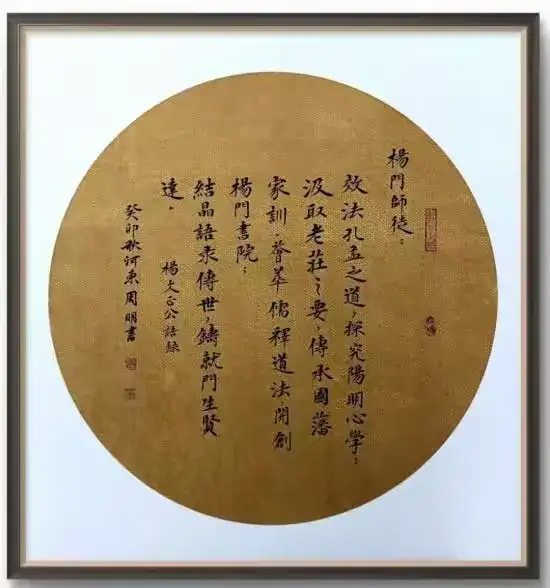 楊門師徒：
效法孔孟之道，探究陽明心學；
汲取老莊之要，傳承國藩
家訓，薈萃儒釋道法，開創
楊門書院；
結晶語录傳世，鑄就門生賢
達。
楊文正公語録
癸卯秋河東周明書